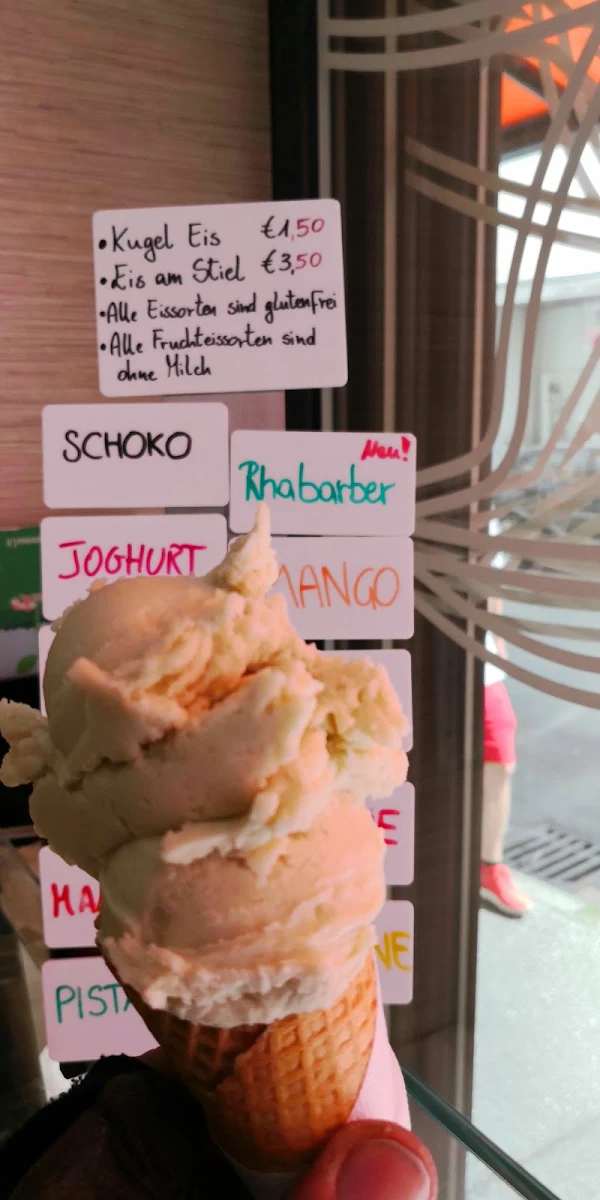 • Kugel Eis €1,50
• Eis am Stiel €3,50
• Alle Eissorten sind glutenfrei
• Alle Fruchteissorten sind
ohne Milch
SCHOKO
Neu!
Rhabarber
JOGHURT
MANGO